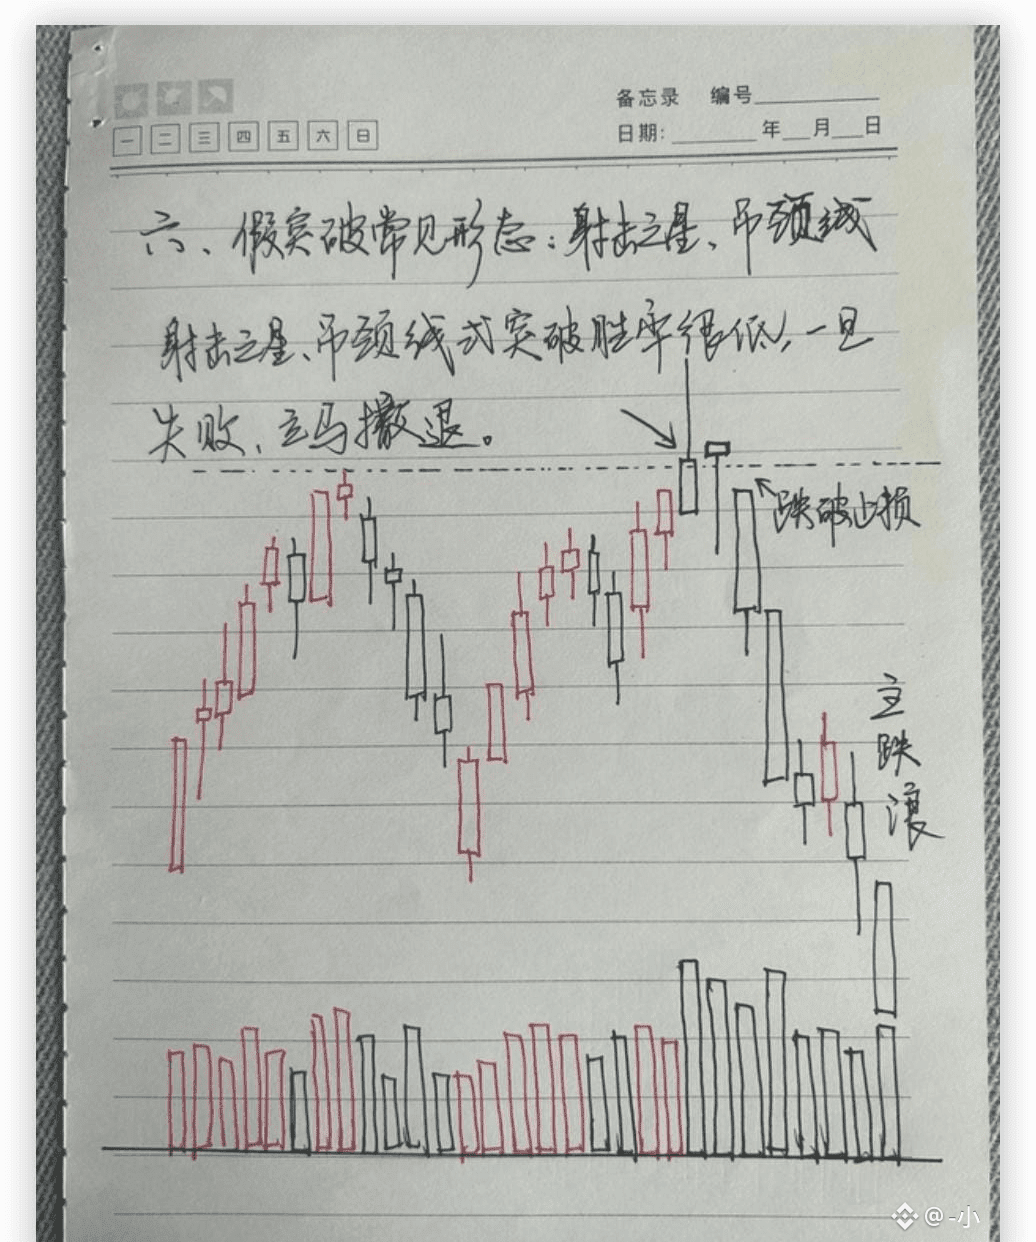 备忘录 编号
一 二 三 四 五 六 日
日期: 年 月 日
六、假突破常见形态：射击之星、吊颈线
射击之星、吊颈线式突破胜率很低，一旦
失败，立马撤退。
跌破止损
主
跌
浪
@-小